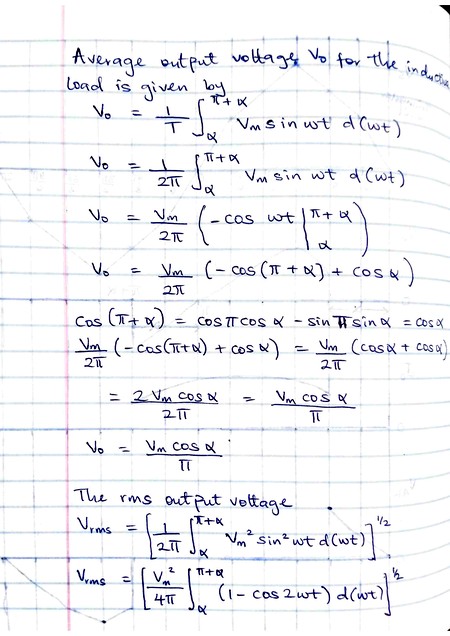 Average output voltage V₀ for the inductive
load is given by
V₀ = 1/T ∫_α^(π+α) Vm sin wt d(wt)
V₀ = 1/2π ∫_α^(π+α) Vm sin wt d(wt)
V₀ = Vm/2π (-cos wt |_α^(π+α))
V₀ = Vm/2π (-cos(π+α) + cos α)
cos(π+α) = cosπcos α - sin π sin α = cosα
Vm/2π (-cos(π+α) + cos α) = Vm/2π (cosα + cosα)
= 2 Vm cos α/2π = Vm cos α/π
V₀ = Vm cos α/π
The rms output voltage
Vrms = [1/2π ∫_α^(π+α) Vm² sin² wt d(wt)]^1/2
Vrms = [Vm²/4π ∫_α^(π+α) (1 - cos 2wt) d(wt)]^1/2